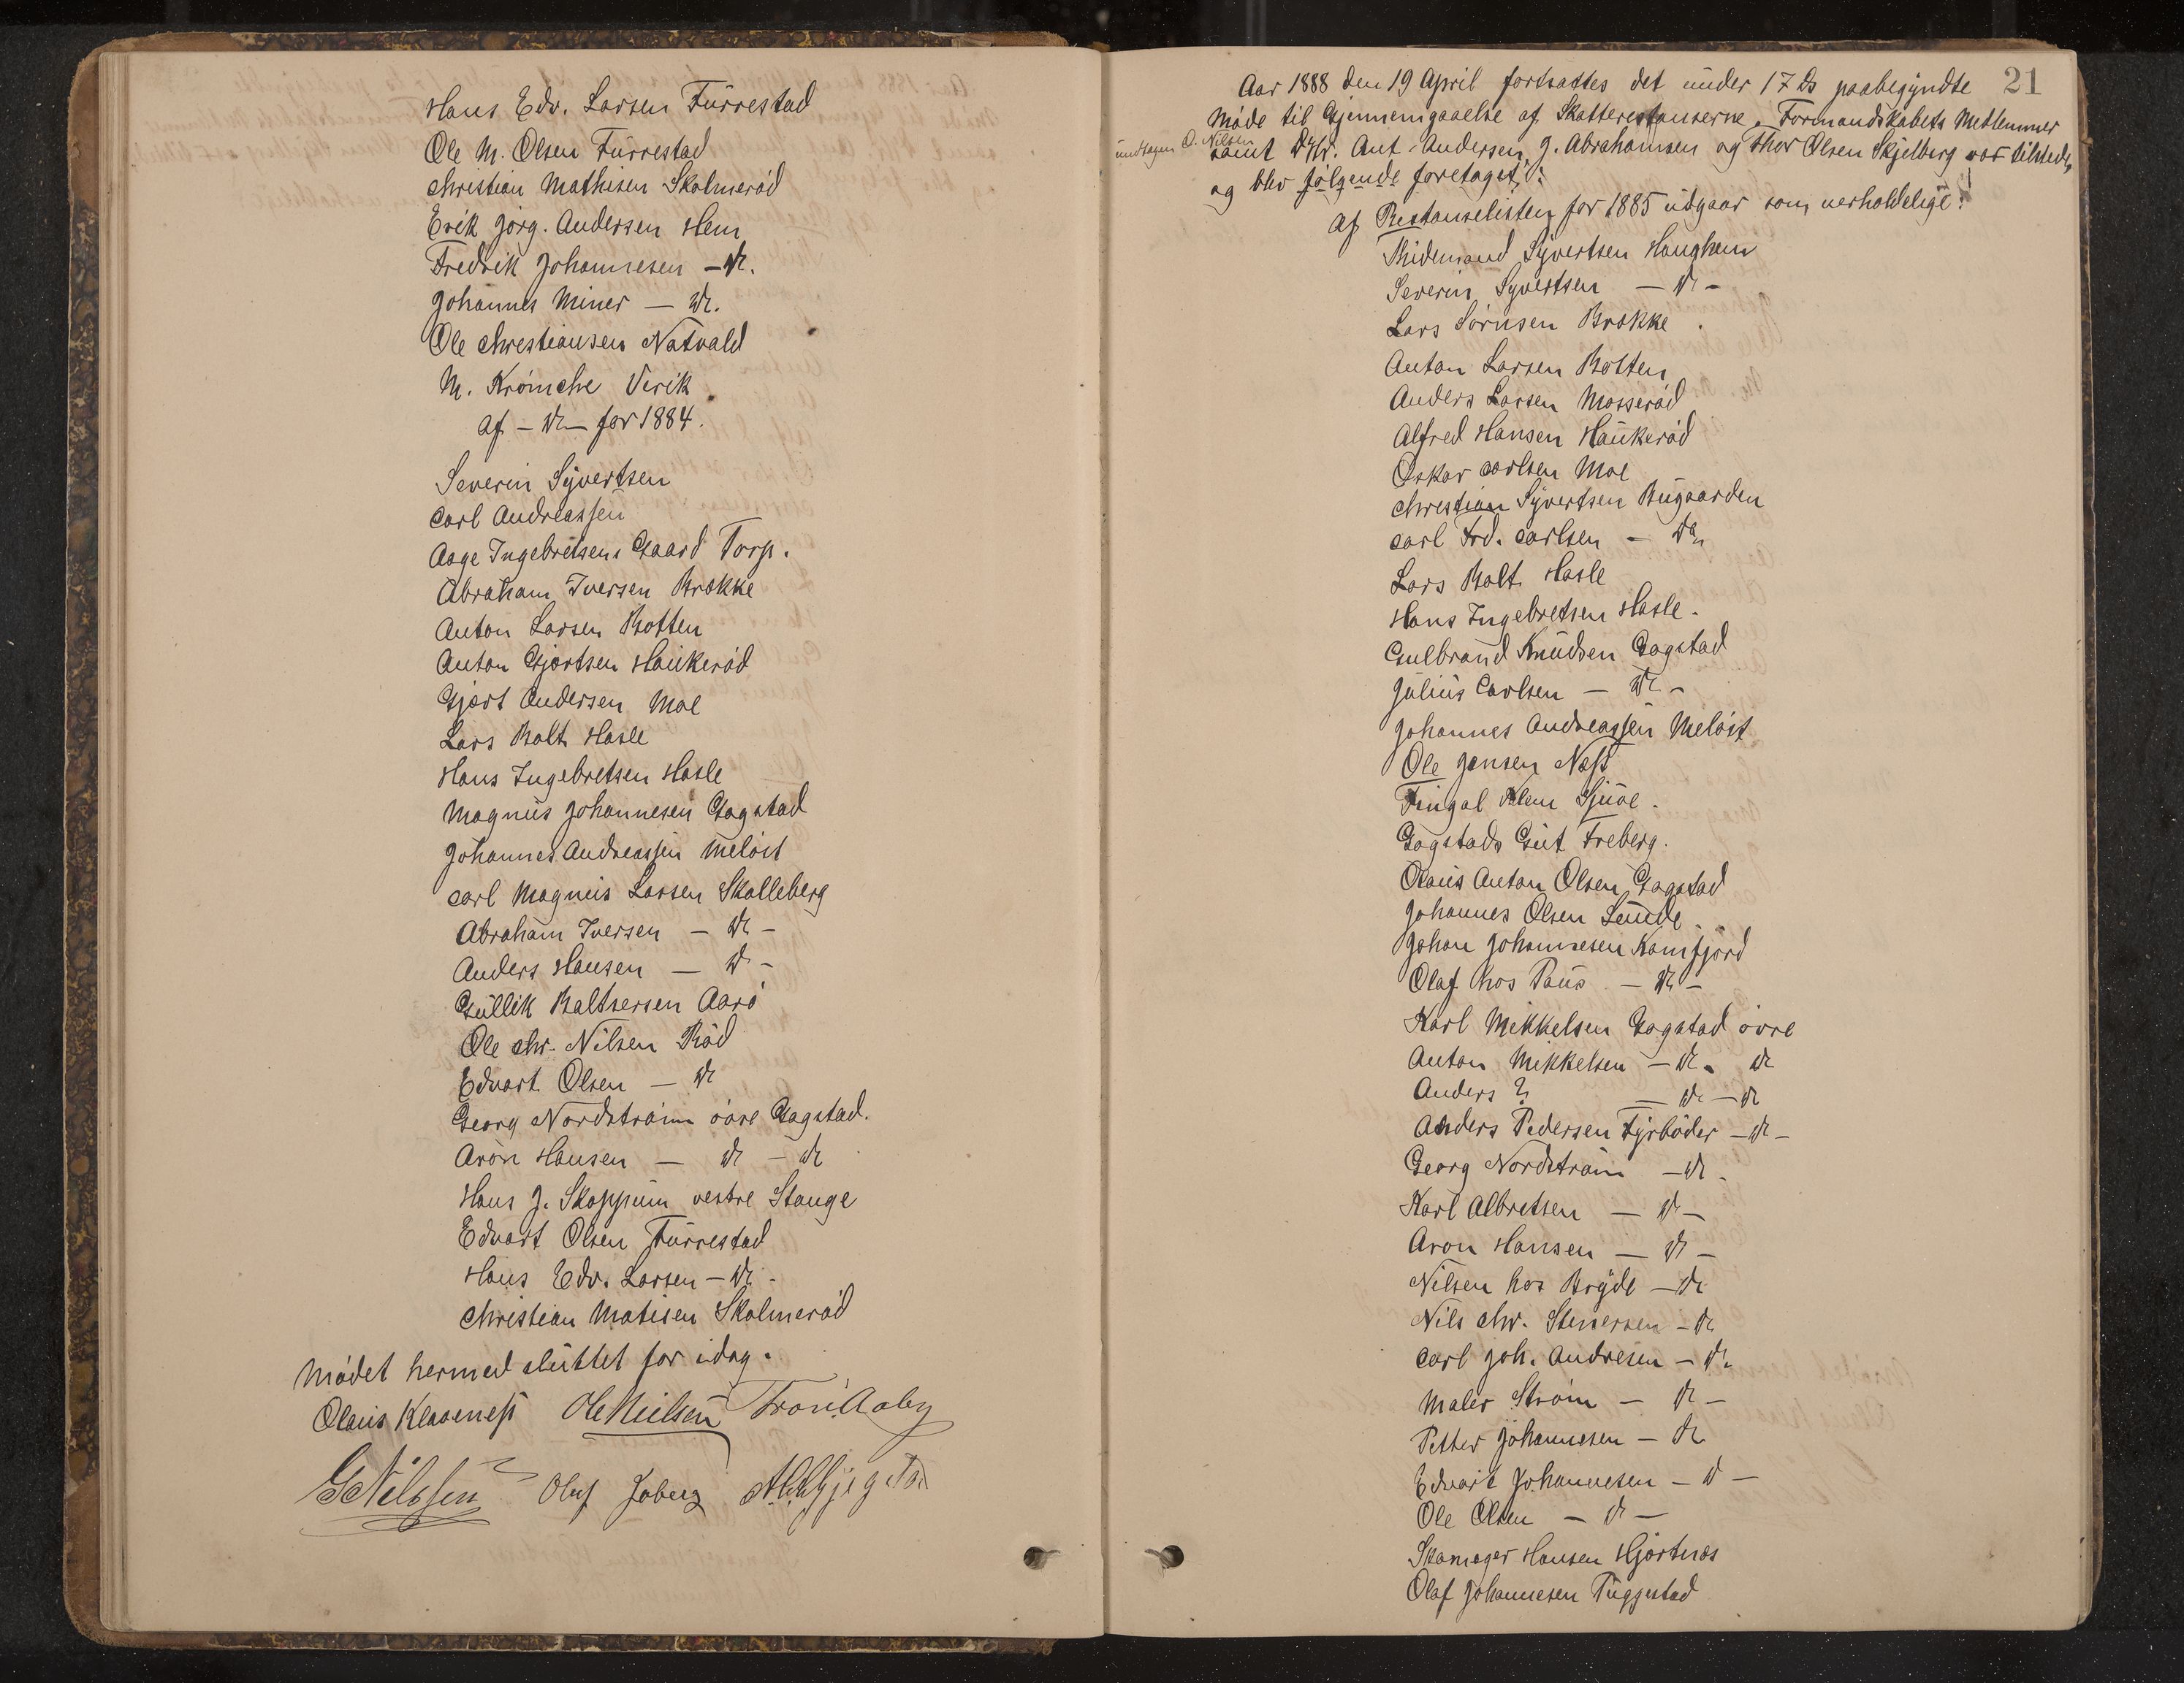 Hans Edv. Larsen Furrestad
Ole M. Olsen Furrestad
Christian Mathisen Skolmerød
Erik Jörg. Andersen Hem
Fredrik Johannesen - do.
Johannes Miner - do.
Ole Christiansen Natvald
M. Krömche Virik
af - do - for 1884.
Severin Syvertsen
Carl Andreassen
Aage Ingebretsen Gaard Torp.
Abraham Iversen Brokke
Anton Larsen Rotten
Anton Gjertsen Haukeröd
Gjert Andersen Moe
Lars Balt. Hasle
Hans Ingebretsen Hasle
Magnus Johannesen Gogstad
Johannes Andreassen Meløst
Carl Magnus Larsen Skalleberg
Abraham Iversen - do -
Anders Hansen - do -
Gullik Baltsersen Aarö
Ole Chr. Nilsen Röd
Edvart Olsen - do
Georg Nordström övre Gogstad.
Aron Hansen - do - do
Hans J. Skoppum vestre Stange
Edvart Olsen Furrestad
Hans Edv. Larsen - do -
Christian Matisen Skolmeröd
Mödet hermed sluttet for idag.
Olaus Klaveness Ole Nielsen Aaby
G Nilssen Oluf Joberg
21
Aar 1888 den 19 April fortsattes det under 17 ds paabegyndte
Möde til Gjennemgaaelse af Skatterestanserne. Formandskabets Medlemmer
undtagen O. Nilsen
samt Dhr. Ant. Andersen, J. Abrahamsen og Thor Olsen Skjelberg var tilstede,
og blev følgende foretaget:
Af Restanselisten for 1885 udgaar som uerholdelige:
Ridemand Syvertsen Haughem
Severin Syvertsen - do -
Lars Sörnsen Brokke
Anton Larsen Rotten
Anders Larsen Mosseröd
Alfred Hansen Haukeröd
Oskar Carlsen Moe
Christian Syvertsen Bugaarden
Carl Frd. Carlsen - do
Lars Balt. Hasle
Hans Ingebretsen Hasle.
Gulbrand Knudsen Gogstad
Julius Carlsen - do -
Johannes Andreassen Melöst
Ole Jensen Næss
Fingal Klem Sjuve.
Gogstads Gut Freberg.
Olaus Anton Olsen Gogstad
Johannes Olsen Lunde
Johan Johannesen Kamfjord
Olaf hos Paus - do -
Karl Mikkelsen Gogstad övre
Anton Mikkelsen - do - do
Anders ? - do - do
Anders Pedersen Fyrböder - do -
Georg Nordström - do -
Karl Albretsen - do -
Aron Hansen - do -
Nilsen hos Bryde - do
Nils Chr. Stenersen - do
Carl Joh. Andresen - do
Maler Ström - do -
Petter Johannesen - do
Edvart Johannesen - do -
Ole Olsen - do -
Skomager Hansen Hjertnæs
Olaf Johannesen Tuggestad